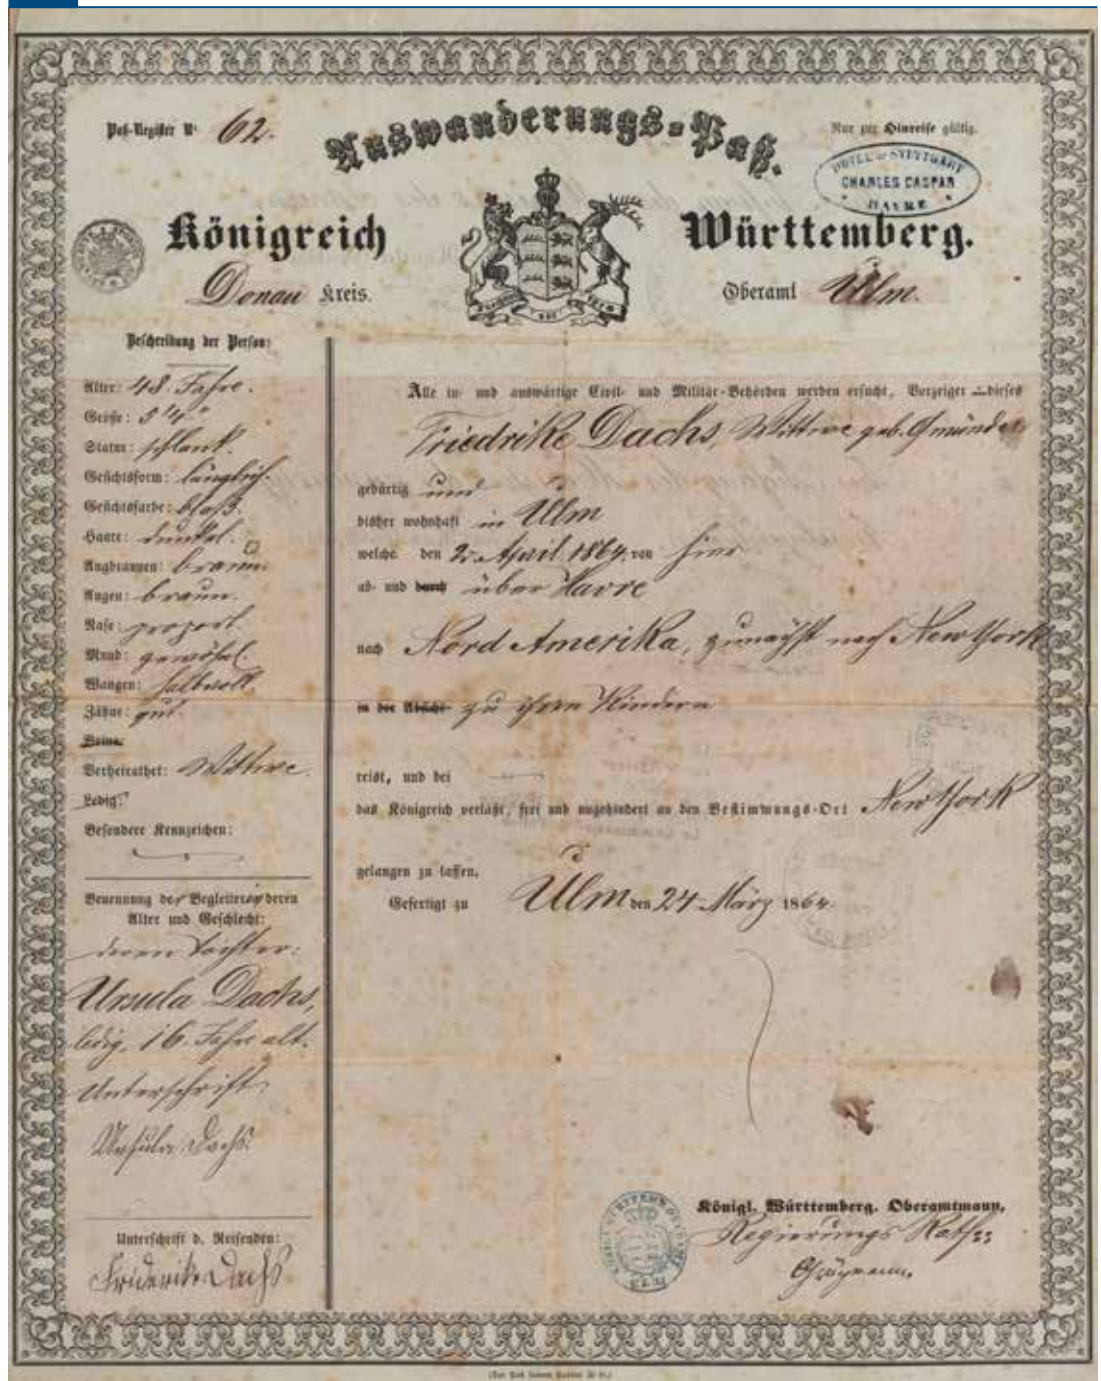 Paß-Register Nº 62.
Auswanderungs-Paß.
Nur zur Hinreise gültig.
HOTEL DE STUTTGART
CHARLES CASPAR
HAVRE
Königreich Württemberg.
Donau Kreis.
Oberamt Ulm.
Beschreibung der Person:
Alter: 48. Jahre.
Größe: 5' 4"
Statur: schlank.
Gesichtsform: länglich.
Gesichtsfarbe: blaß.
Haare: dunkel.
Augbraunen: braun.
Augen: braun.
Nase: proport.
Mund: gewöhnl.
Wangen: halbvoll.
Zähne: gut.
Beine:
Verheirathet: Wittwe.
Ledig:
Besondere Kennzeichen:
Benennung der Begleiterin deren
Alter und Geschlecht:
deren Tochter:
Ursula Dachs,
ledig, 16. Jahre alt.
Unterschrift:
Ursula Dachs.
Unterschrift d. Reisenden:
Friederike Dachs
Alle in- und auswärtige Civil- und Militär-Behörden werden ersucht, Vorzeiger dieses
Friedrike Dachs, Wittwe geb. Gmünder
gebürtig und
bisher wohnhaft in Ulm
welche den 2. April 1864. von hier
ab- und durch über Havre
nach Nord Amerika, zunächst nach New York
in der Absicht zu ihren Kindern
reist, und bei
das Königreich verläßt, frei und ungehindert an den Bestimmungs-Ort New York
gelangen zu lassen.
Gefertigt zu Ulm den 24 März 1864.
Königl. Württemberg. Oberamtmann,
Regierungs Rath
ULM